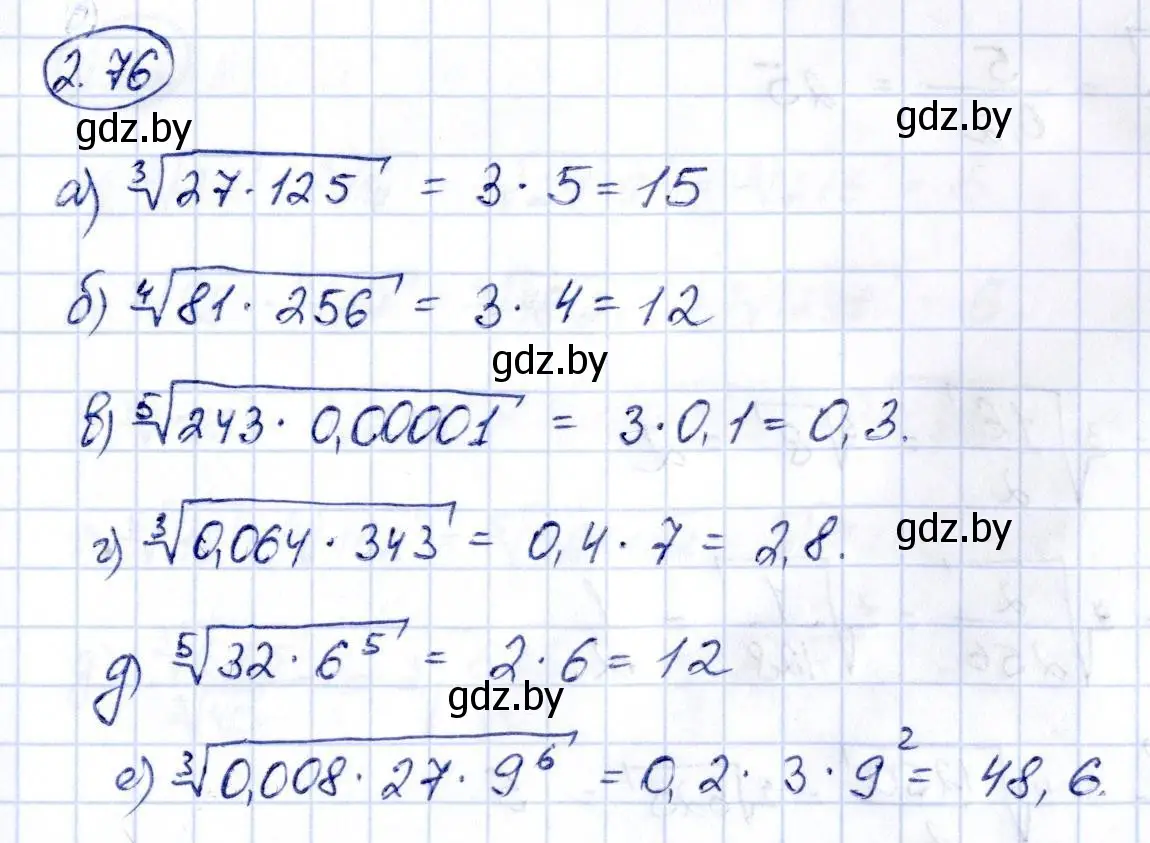 2.76
gdz.by
gdz.by
а) ∛(27·125) = 3·5=15
б) ∜(81·256) = 3·4=12
gdz.by
в) ⁵√(243·0,00001) = 3·0,1=0,3.
г) ∛(0,064·343) = 0,4·7=2,8.
gdz.by
д) ⁵√(32·6⁵) = 2·6=12
gdz.by
е) ∛(0,008·27·9⁶) =0,2·3·9²= 48,6.